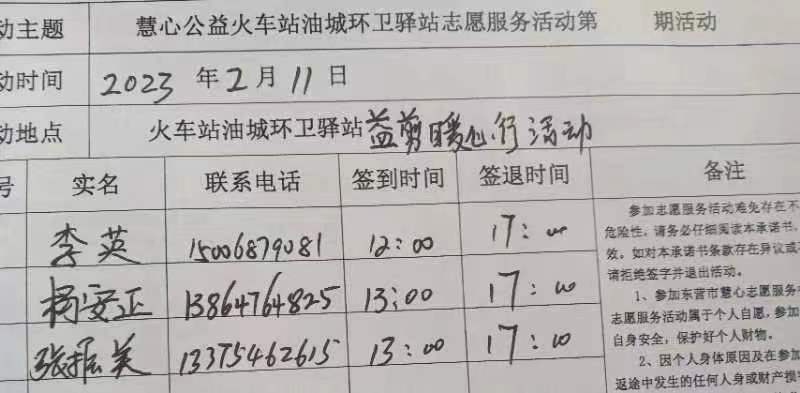 动主题 慧心公益火车站油城环卫驿站志愿服务活动第 期活动
动时间 2023 年 2 月 11 日
动地点 火车站油城环卫驿站益剪暖心行活动
号 实名 联系电话 签到时间 签退时间 备注
李英 15006879081 12:00 17:00
杨安正 13864764825 13:00 17:00
张振美 13375462615 13:00 17:00
参加志愿服务活动难免存在不
危险性,请务必仔细阅读本承诺书,
效。如对本承诺书条款存在异议或
请拒绝签字并退出活动。
1、参加东营市慧心志愿服务
志愿服务活动属于个人自愿,参加
自身安全,保护好个人财物。
2、因个人身体原因及在参加
返途中发生的任何人身或财产损